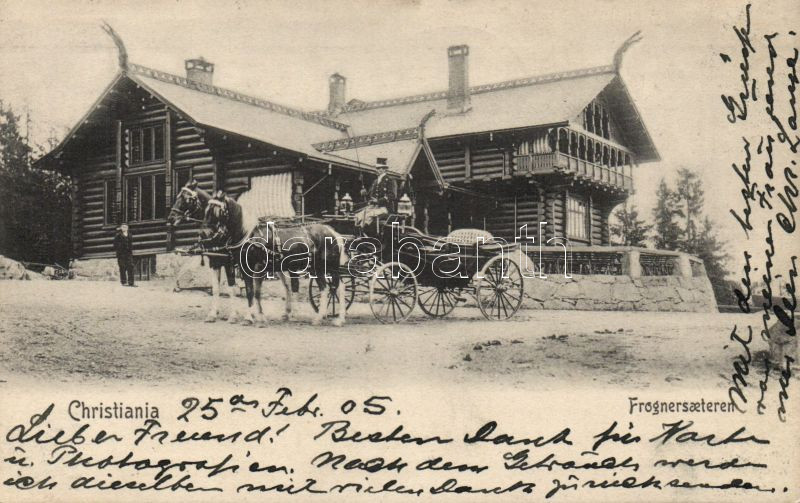 Christiania 25ten Febr. 05.
Frognersæteren
Lieber Freund! Besten Dank für Karte
u. Photografien. Nach dem Gebrauch werde
ich dieselben mit vielen Dank zurücksenden.
Mit den besten Grüssen
von meiner Frau und
mir Dein Chr.
darabanth